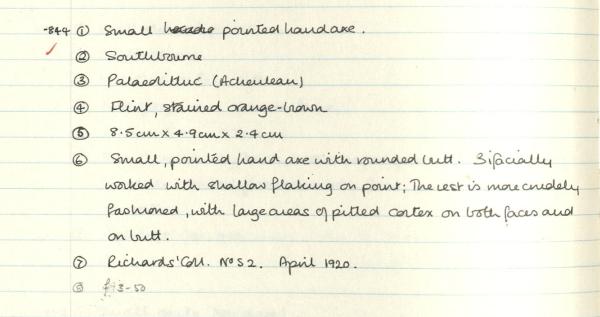 -844 ① Small pointed handaxe.
② Southbourne
③ Palaeolithic (Acheulean)
④ Flint, stained orange-brown
⑤ 8.5cm x 4.9cm x 2.4cm
⑥ Small, pointed hand axe with rounded butt. Bifacially
worked with shallow flaking on point; The rest is more crudely
fashioned, with large areas of pitted cortex on both faces and
on butt.
⑦ Richards' Coll. No 52. April 1920.
⑧ £3-50